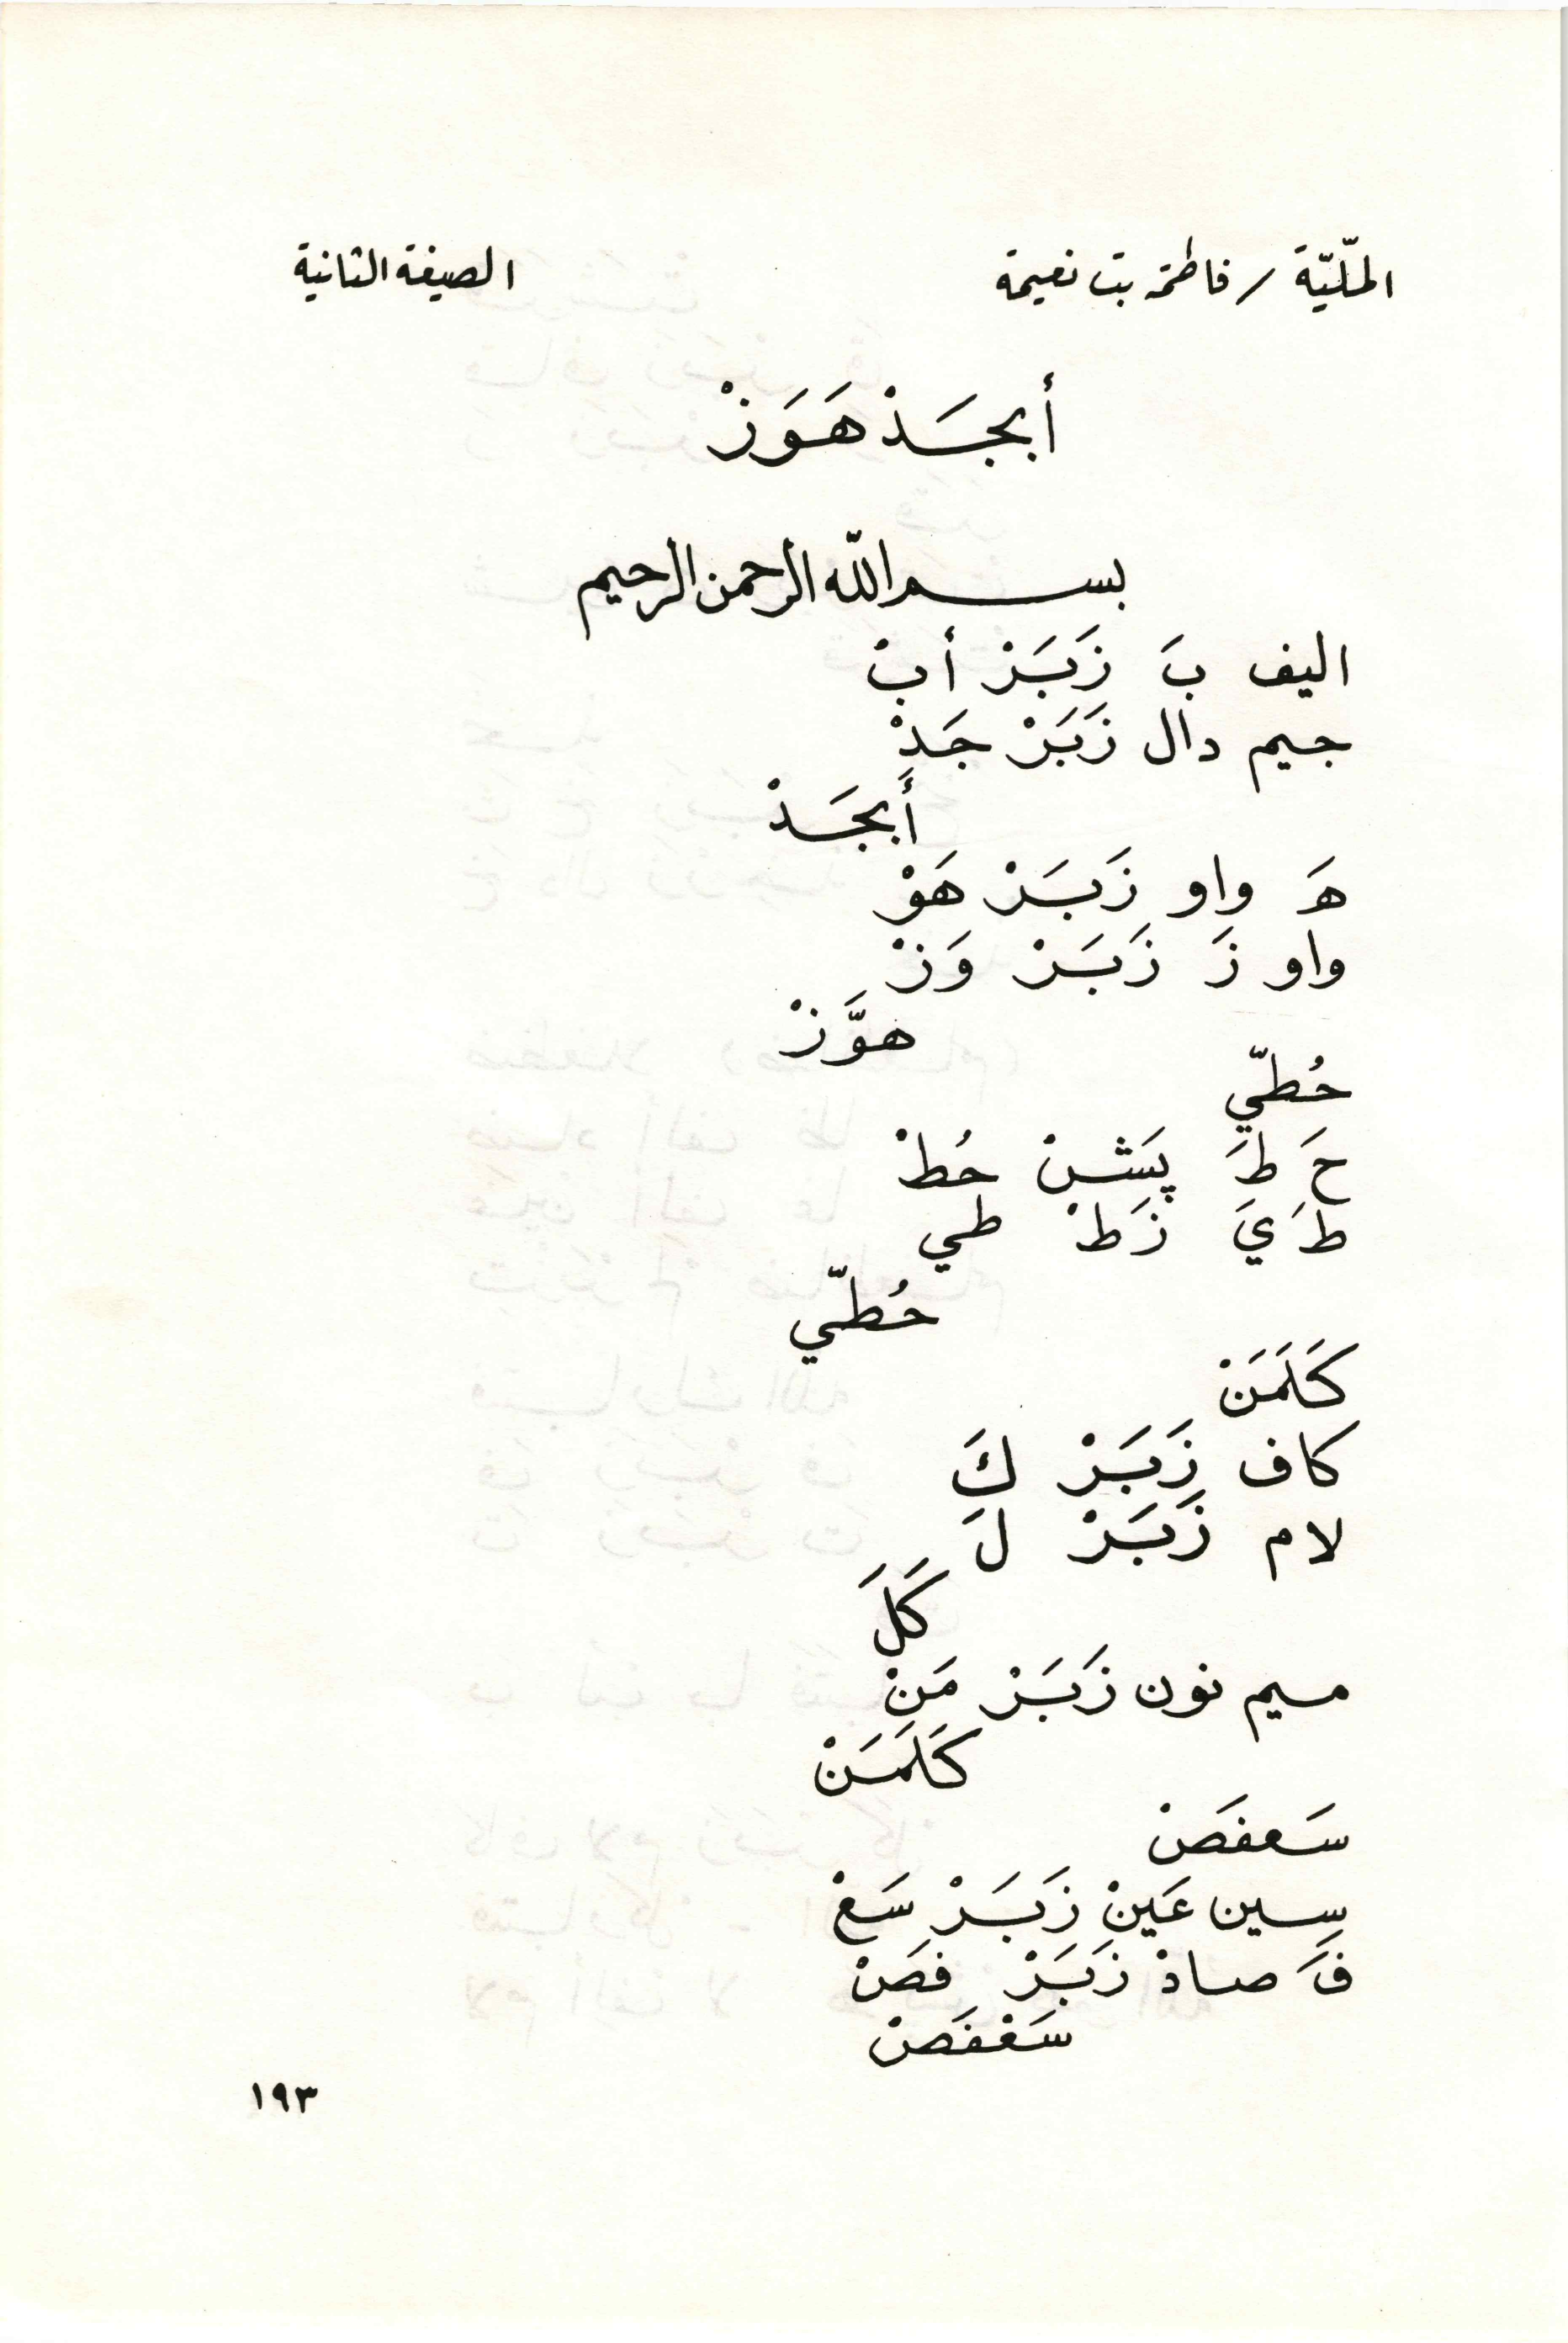 الملّيّة / فاطمة بت نعيمة
الصيغة الثانية
أبجَدْ هَوَزْ
بسم الله الرحمن الرحيم
اليف بَ زَبَرْ أبْ
جيم دال زَبَرْ جَدْ
أَبجَدْ
هَ واو زَبَرْ هَوْ
واو زَ زَبَرْ وَزْ
هوَّزْ
حُطّي
حَ طَ پَشْنْ حُطْ
طَ يَ زَطْ طي
حُطّي
كَلَمَنْ
كاف زَبَرْ كَ
لام زَبَرْ لَ
كَلَ
ميم نون زَبَرْ مَنْ
كَلَمَنْ
سَعفَصْ
سين عَينْ زَبَرْ سَعْ
فَ صادْ زَبَرْ فَصْ
سَعْفَصْ
١٩٣